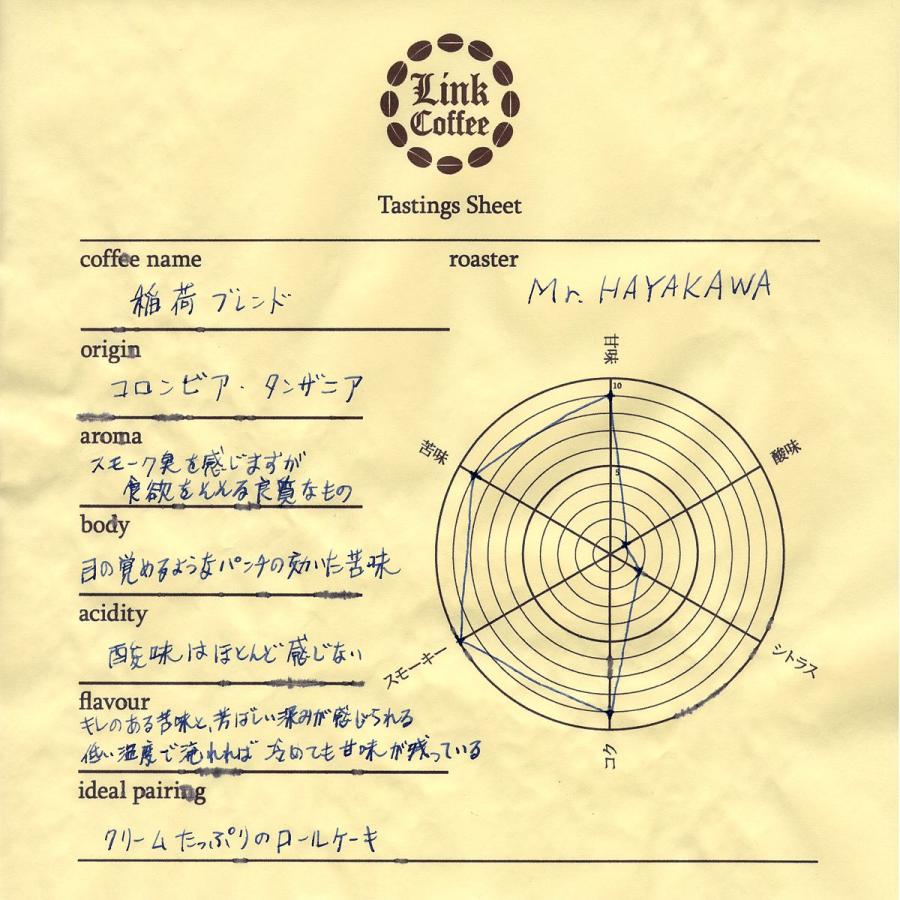 Link
Coffee
Tastings Sheet
coffee name
稲荷ブレンド
roaster
Mr. HAYAKAWA
origin
コロンビア・タンザニア
aroma
スモーク臭を感じますが
食欲をそそる良質なもの
body
目の覚めるようなパンチの効いた苦味
acidity
酸味はほとんど感じない
flavour
キレのある苦味と、芳ばしい深みが感じられる
低い温度で淹れれば 冷めても甘味が残っている
ideal pairing
クリームたっぷりのロールケーキ
甘味
10
5
酸味
シトラス
スモーキー
苦味